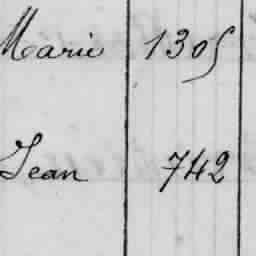 Marie 1305
Jean 742